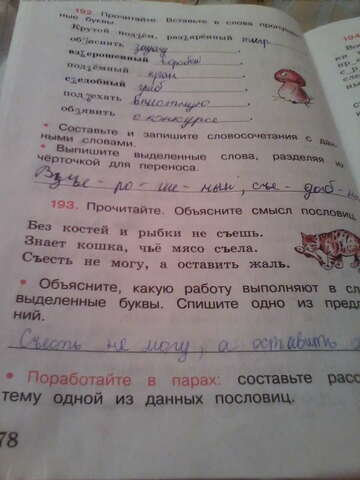 192. Прочитайте. Вставьте в слова
ные буквы.
Крутой подъём, разъярённый тигр
объяснить задачу
взъерошенный воробей
подъёмный кран
съедобный гриб
подъехать
объявить о конкурсе
• Составьте и запишите словосочетания с дан-
ными словами.
• Выпишите выделенные слова, разделяя
чёрточкой для переноса.
Взъе - ро - ше - ный, съе - доб -
193. Прочитайте. Объясните смысл пословиц.
Без костей и рыбки не съешь.
Знает кошка, чьё мясо съела.
Съесть не могу, а оставить жаль.
• Объясните, какую работу выполняют в сл
выделенные буквы. Спишите одно из пред
ний.
Съесть не могу, а оставить
• Поработайте в парах: составьте расс
тему одной из данных пословиц.
78
194